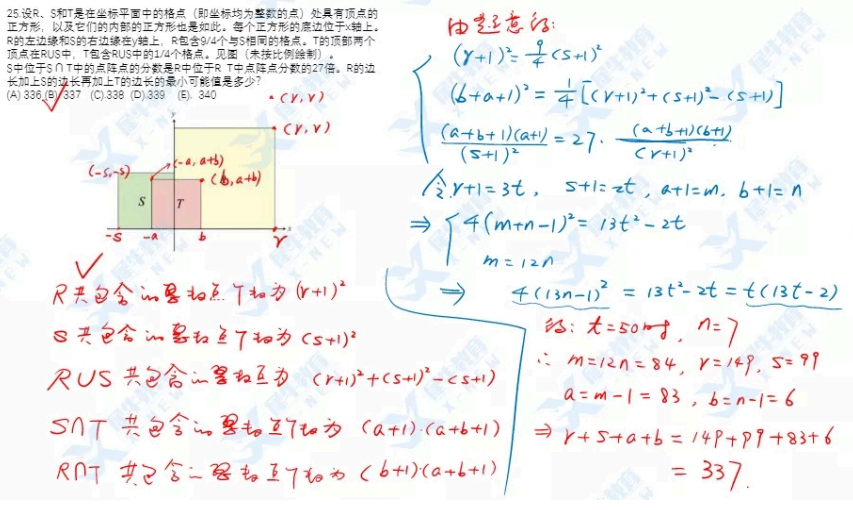 25.设R、S和T是在坐标平面中的格点（即坐标均为整数的点）处具有顶点的
正方形，以及它们的内部的正方形也是如此。每个正方形的底边位于x轴上。
R的左边缘和S的右边缘在y轴上，R包含9/4个与S相同的格点。T的顶部两个
顶点在RUS中，T包含RUS中的1/4个格点。见图（未按比例绘制）。
S中位于S∩T中的点阵点的分数是R中位于R T中点阵点分数的27倍。R的边
长加上S的边长再加上T的边长的最小可能值是多少?
(A) 336 (B) 337 (C).338 (D).339 (E). 340
(r, r)
y
(r, r)
(-a, a+b)
(-s,-s)
(b, a+b)
S
T
x
-s
-a
b
r
R共包含的整数点个数为(r+1)²
S共包含的整数点个数为(s+1)²
RUS共包含的整数点为 (r+1)²+(s+1)²-(s+1)
S∩T 共包含的整数点个数为 (a+1)·(a+b+1)
R∩T 共包含的整数点个数为 (b+1)·(a+b+1)
由题意得:
(r+1)²=9/4(s+1)²
(b+a+1)²=1/4[(r+1)²+(s+1)²-(s+1)]
(a+b+1)(a+1)/(s+1)²=27·(a+b+1)(b+1)/(r+1)²
令r+1=3t, s+1=2t, a+1=m, b+1=n
⇒ 4(m+n-1)²=13t²-2t
m=12n
⇒ 4(13n-1)²=13t²-2t=t(13t-2)
得: t=50时, n=7
∴ m=12n=84, r=149, s=99
a=m-1=83, b=n-1=6
⇒ r+s+a+b=149+99+83+6
=337.
犀牛教育
X-NEW